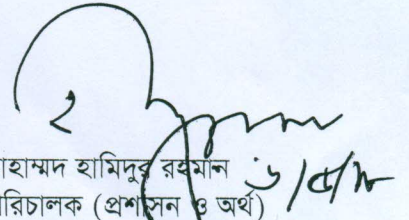 াহাম্মদ হামিদুর রহমান
রিচালক (প্রশাসন ও অর্থ)